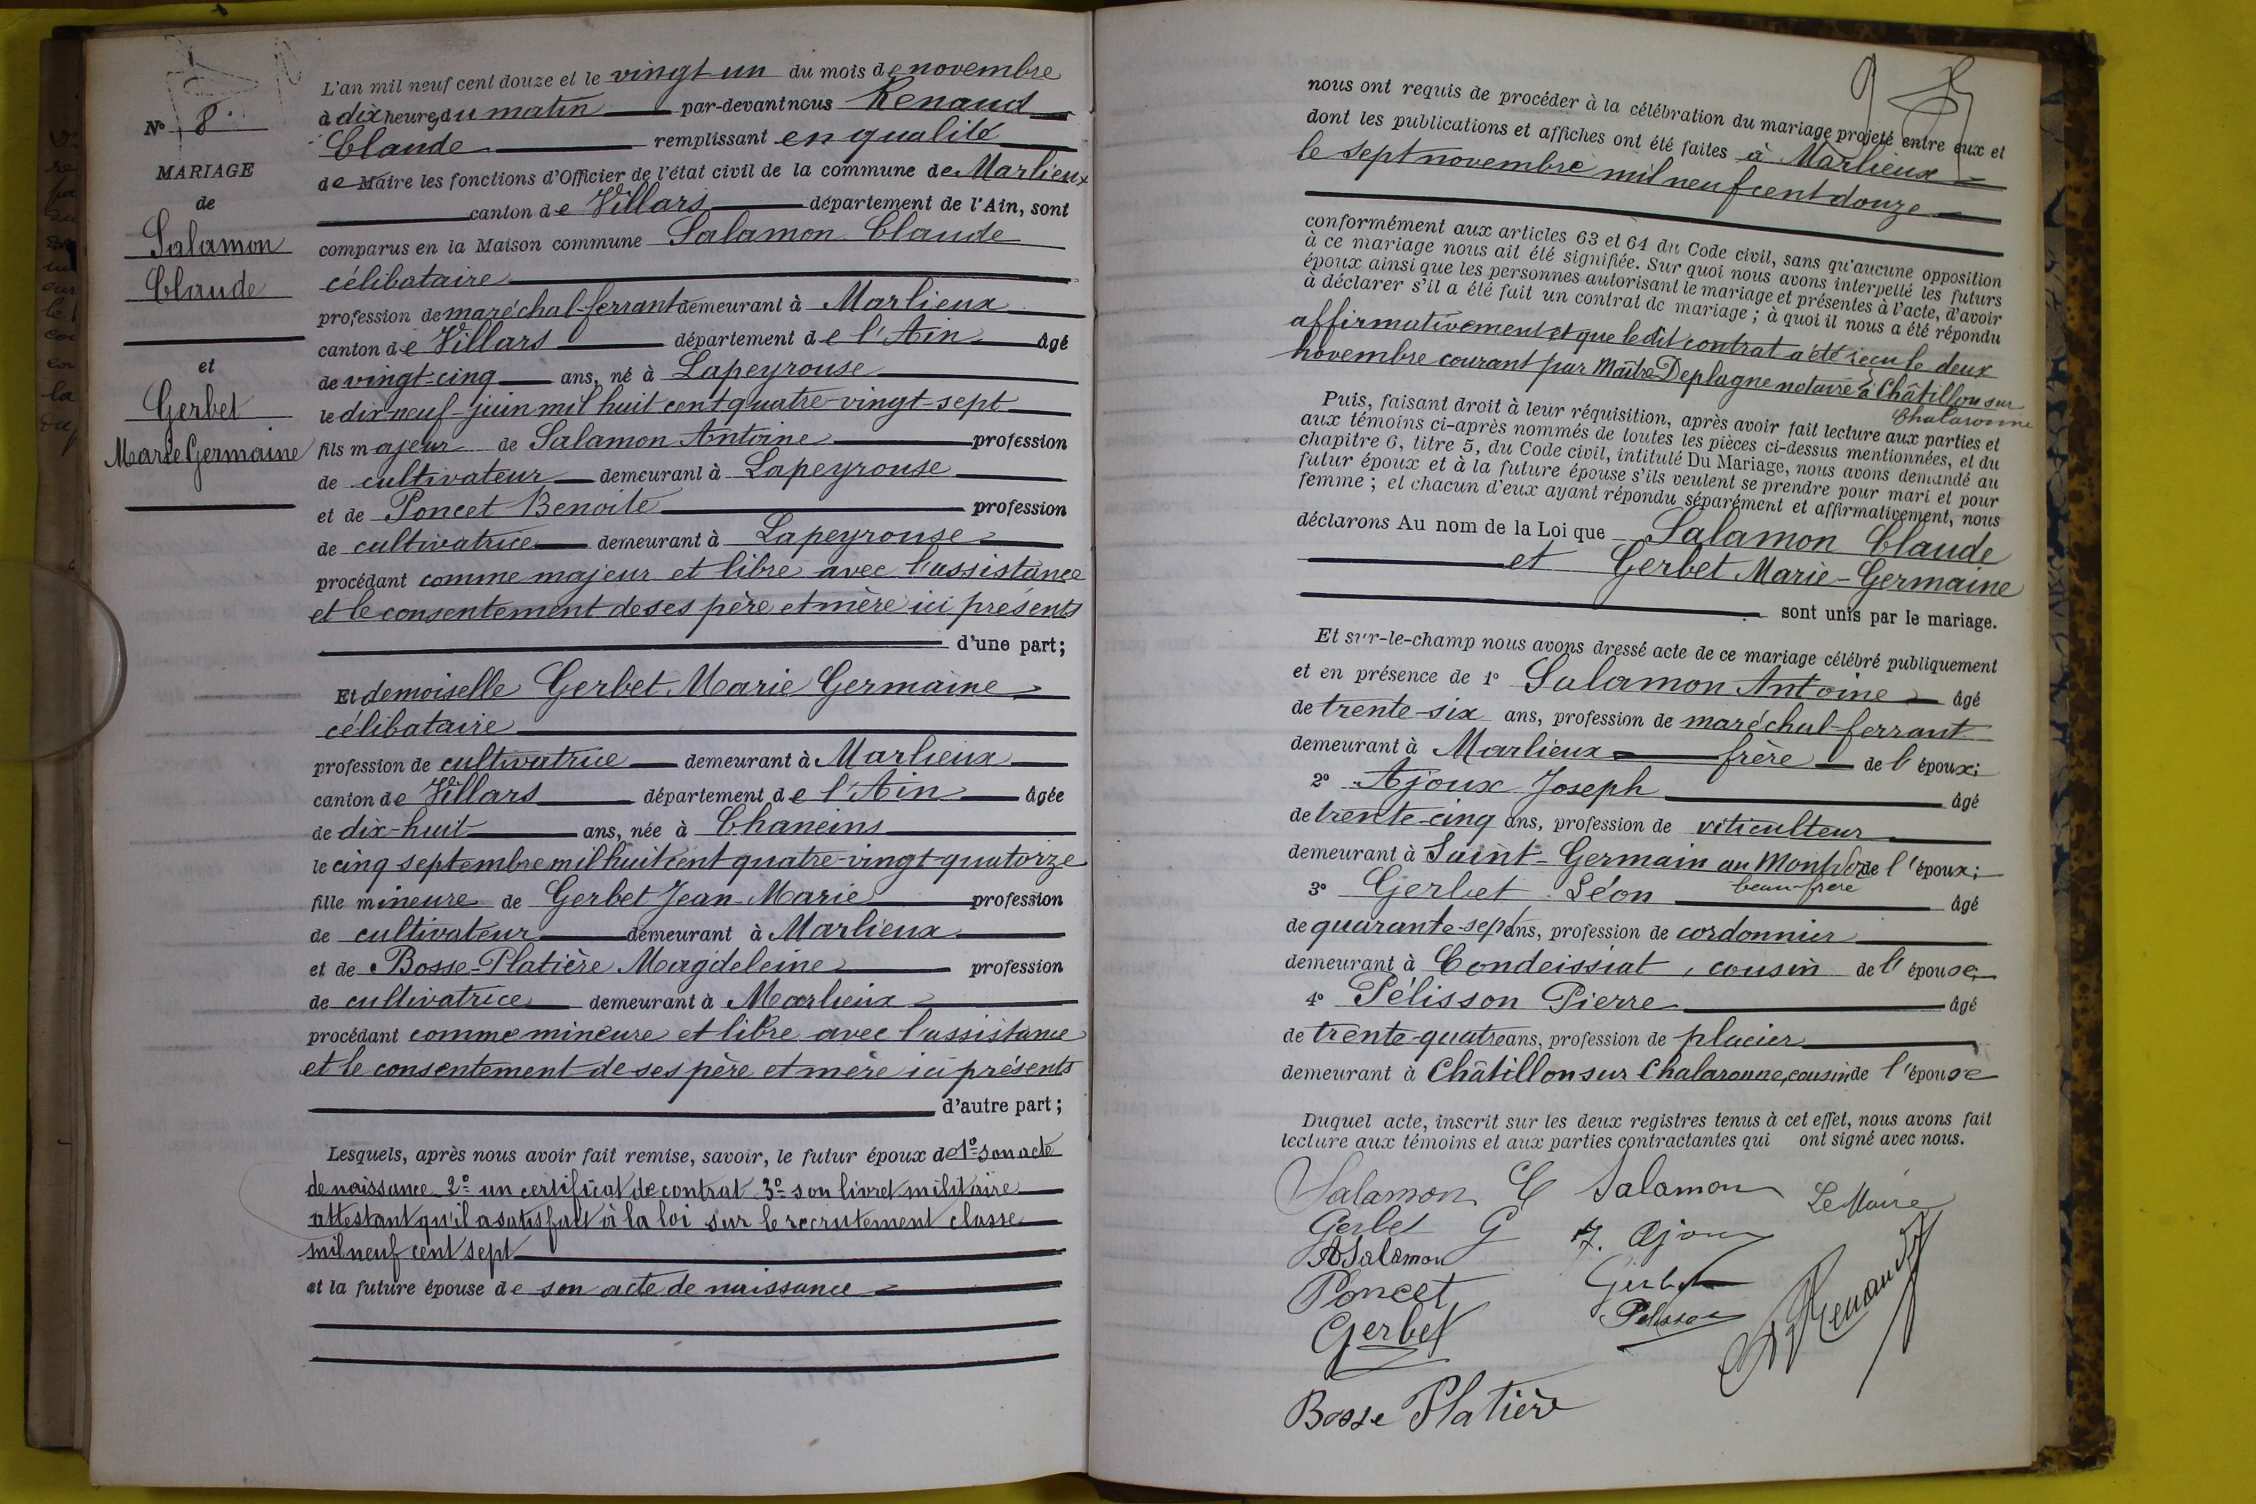 N° 8
MARIAGE
de
Salamon
Claude
et
Gerbet
Marie Germaine
L'an mil neuf cent douze et le vingt un du mois de novembre
à dix heures du matin par-devant nous Renaud
Claude remplissant en qualité
de Maire les fonctions d'Officier de l'état civil de la commune de Marlieux
canton de Villars département de l'Ain, sont
comparus en la Maison commune Salamon Claude
célibataire
profession de maréchal-ferrant demeurant à Marlieux
canton de Villars département de l'Ain âgé
de vingt-cinq ans, né à Lapeyrouse
le dix-neuf juin mil huit cent quatre-vingt-sept
fils majeur de Salamon Antoine profession
de cultivateur demeurant à Lapeyrouse
et de Poncet Benoite profession
de cultivatrice demeurant à Lapeyrouse
procédant comme majeur et libre avec l'assistance
et le consentement de ses père et mère ici présents
d'une part;
Et demoiselle Gerbet Marie Germaine
célibataire
profession de cultivatrice demeurant à Marlieux
canton de Villars département de l'Ain âgée
de dix-huit ans, née à Chaneins
le cinq septembre mil huit cent quatre-vingt-quatorze
fille mineure de Gerbet Jean Marie profession
de cultivateur demeurant à Marlieux
et de Bosse-Platière Magdeleine profession
de cultivatrice demeurant à Marlieux
procédant comme mineure et libre avec l'assistance
et le consentement de ses père et mère ici présents
d'autre part;
Lesquels, après nous avoir fait remise, savoir, le futur époux de 1° son acte
de naissance 2° un certificat de contrat 3° son livret militaire
attestant qu'il a satisfait à la loi sur le recrutement classe
mil neuf cent sept
et la future épouse de son acte de naissance
9
nous ont requis de procéder à la célébration du mariage projeté entre eux et
dont les publications et affiches ont été faites à Marlieux
le sept novembre mil neuf cent douze
conformément aux articles 63 et 64 du Code civil, sans qu'aucune opposition
à ce mariage nous ait été signifiée. Sur quoi nous avons interpellé les futurs
époux ainsi que les personnes autorisant le mariage et présentes à l'acte, d'avoir
à déclarer s'il a été fait un contrat de mariage; à quoi il nous a été répondu
affirmativement et que le dit contrat a été reçu le deux
novembre courant par Maître Deplagne notaire à Châtillon sur
Chalaronne
Puis, faisant droit à leur réquisition, après avoir fait lecture aux parties et
aux témoins ci-après nommés de toutes les pièces ci-dessus mentionnées, et du
chapitre 6, titre 5, du Code civil, intitulé Du Mariage, nous avons demandé au
futur époux et à la future épouse s'ils veulent se prendre pour mari et pour
femme; et chacun d'eux ayant répondu séparément et affirmativement, nous
déclarons Au nom de la Loi que Salamon Claude
et Gerbet Marie-Germaine
sont unis par le mariage.
Et sur-le-champ nous avons dressé acte de ce mariage célébré publiquement
et en présence de 1° Salamon Antoine âgé
de trente-six ans, profession de maréchal-ferrant
demeurant à Marlieux frère de l'époux;
2° Ajoux Joseph âgé
de trente-cinq ans, profession de viticulteur
demeurant à Saint-Germain au Mont d'or de l'époux;
beau-frère
3° Gerbet Léon âgé
de quarante-sept ans, profession de cordonnier
demeurant à Condeissiat, cousin de l'épouse
4° Pélisson Pierre âgé
de trente-quatre ans, profession de placier
demeurant à Châtillon sur Chalaronne, cousin de l'épouse
Duquel acte, inscrit sur les deux registres tenus à cet effet, nous avons fait
lecture aux témoins et aux parties contractantes qui ont signé avec nous.
Salamon C Salamon Le Maire
Gerbet G J. Ajoux
A Salamon
Poncet Gerbet
Gerbet Pélisson Renaud
Bosse Platière